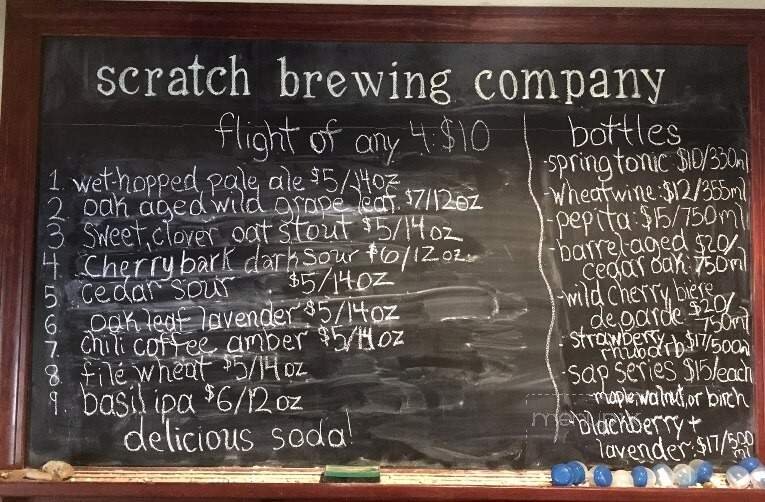 scratch brewing company
flight of any 4: $10
1. wet-hopped pale ale $5/14oz
2. oak aged wild grape leaf $7/12oz
3. sweet clover oat stout $5/14oz
4. cherry bark dark sour $6/12oz
5. cedar sour $5/14oz
6. oak leaf lavender $5/14oz
7. chili coffee amber $5/14oz
8. filé wheat $5/14oz
9. basil ipa $6/12oz
delicious soda!
bottles
-spring tonic $10/330ml
-wheatwine: $12/355ml
-pepita: $15/750ml
-barrel-aged $20/
cedar oak: 750ml
-wild cherry biere
de garde $20/
750ml
-strawberry $17/500ml
rhubarb
-sap series $15/each
maple, walnut, or birch
-blackberry +
lavender: $17/500
ml